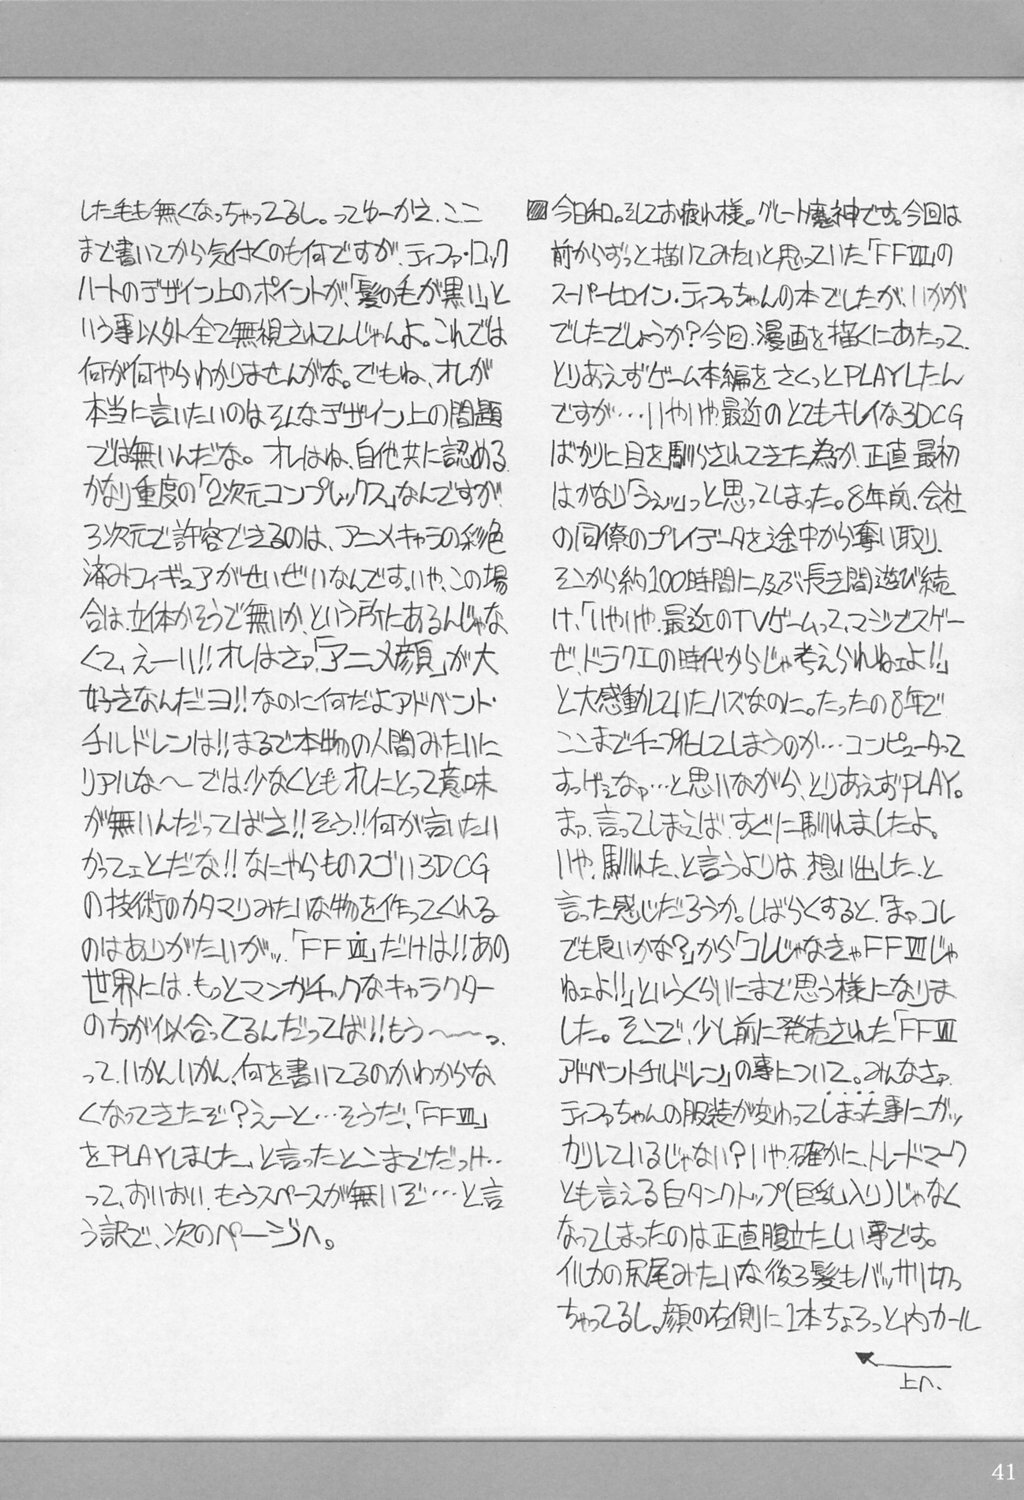 今日和。そしてお疲れ様。グレート魔神です。今回は
前からずっと描いてみたいと思っていた「FFⅦ」の
スーパーヒロイン・ティファちゃんの本でしたが、いかが
でしたでしょうか？今回、漫画を描くにあたって、
とりあえずゲーム本編をさくっとPLAYしたん
ですが…いやいや、最近のとてもキレイな3DCG
ばかりに目を馴らされてきた為か、正直、最初
はかなり「うえッ」っと思ってしまった。8年前、会社
の同僚のプレイデータを途中から奪い取り、
そこから約100時間に及ぶ長き間遊び続
け、「いやいや、最近のTVゲームって、マジでスゲー
ぜ、ドラクエの時代からじゃ考えられねェよ!!」
と大感動していたハズなのに。たったの8年で
ここまでチープ化してしまうのか…コンピュータって
すっげぇなァ…と思いながら、とりあえずPLAY。
まァ、言ってしまえば、すぐに馴れましたよ。
いや、馴れた、と言うよりは、想い出した、と
言った感じだろうか。しばらくすると、「まァコレ
でも良いかな？」から「コレじゃなきゃFFⅦじゃ
ねェよ!!」というくらいにまで思う様になりま
した。そこで、少し前に発売された「FFⅦ
アドベントチルドレン」の事について。みんなさァ、
ティファちゃんの服装が変わってしまった事にガッ
カリしているじゃない？いや、確かに、トレードマーク
とも言える白タンクトップ(巨乳入り)じゃなく
なってしまったのは正直腹立たしい事です。
イルカの尻尾みたいな後ろ髪もバッサリ切っ
ちゃってるし。顔の右側に1本ちょろっと内カール
上へ、
した毛も無くなっちゃってるし。ってゆーかえ、ここ
まで書いてから気付くのも何ですが、ティファ・ロック
ハートのデザイン上のポイントが、「髪の毛が黒い」と
いう事以外全て無視されてんじゃんよ。これでは
何が何やらわかりませんがな。でもね、オレが
本当に言いたいのはそんなデザイン上の問題
では無いんだな。オレはね、自他共に認める、
かなり重度の「2次元コンプレックス」なんですが、
3次元で許容できるのは、アニメキャラの彩色
済みフィギュアがせいぜいなんです。いや、この場
合は、立体かそうで無いか、という所にあるんじゃな
くて、えーい!!オレはさァ、「アニメ顔」が大
好きなんだヨ!!なのに何だよアドベント・
チルドレンは!!まるで本物の人間みたいに
リアルな〜では!少なくともオレにとって意味
が無いんだってばさ!!そう!!何が言いたい
かってェとだな!!なにやらものスゴい3DCG
の技術のカタマリみたいな物を作ってくれる
のはありがたいがッ、「FFⅦ」だけは!!あの
世界には、もっとマンガチックなキャラクター
の方が似合ってるんだってば!!もう〜〜っ、
って、いかんいかん、何を書いてるのかわからな
くなってきたぞ？えーと…そうだ、「FFⅦ」
をPLAYしました、と言ったとこまでだっけ…
って、おいおい、もうスペースが無いぞ…と言
う訳で、次のページへ。
41